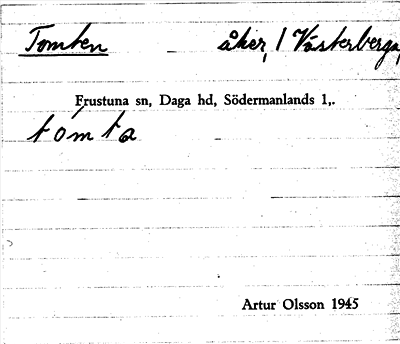 Tomten åker, 1 Västerberga,
Frustuna sn, Daga hd, Södermanlands l,.
tómta
Artur Olsson 1945